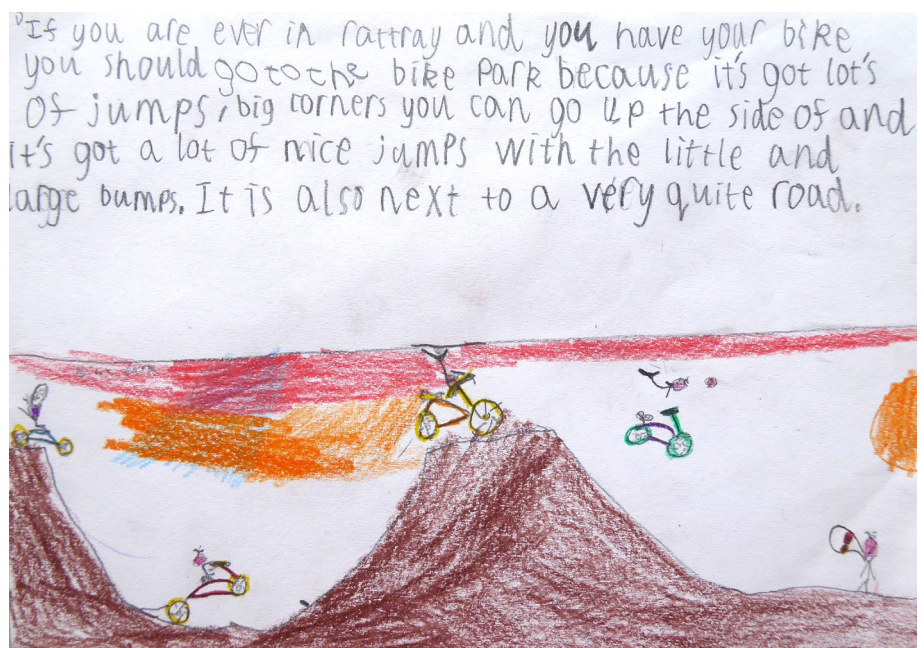 "If you are ever in rattray and you have your bike
you should go to the bike park because it's got lot's
of jumps, big corners you can go up the side of and
it's got a lot of nice jumps with the little and
large bumps. It is also next to a very quite road.